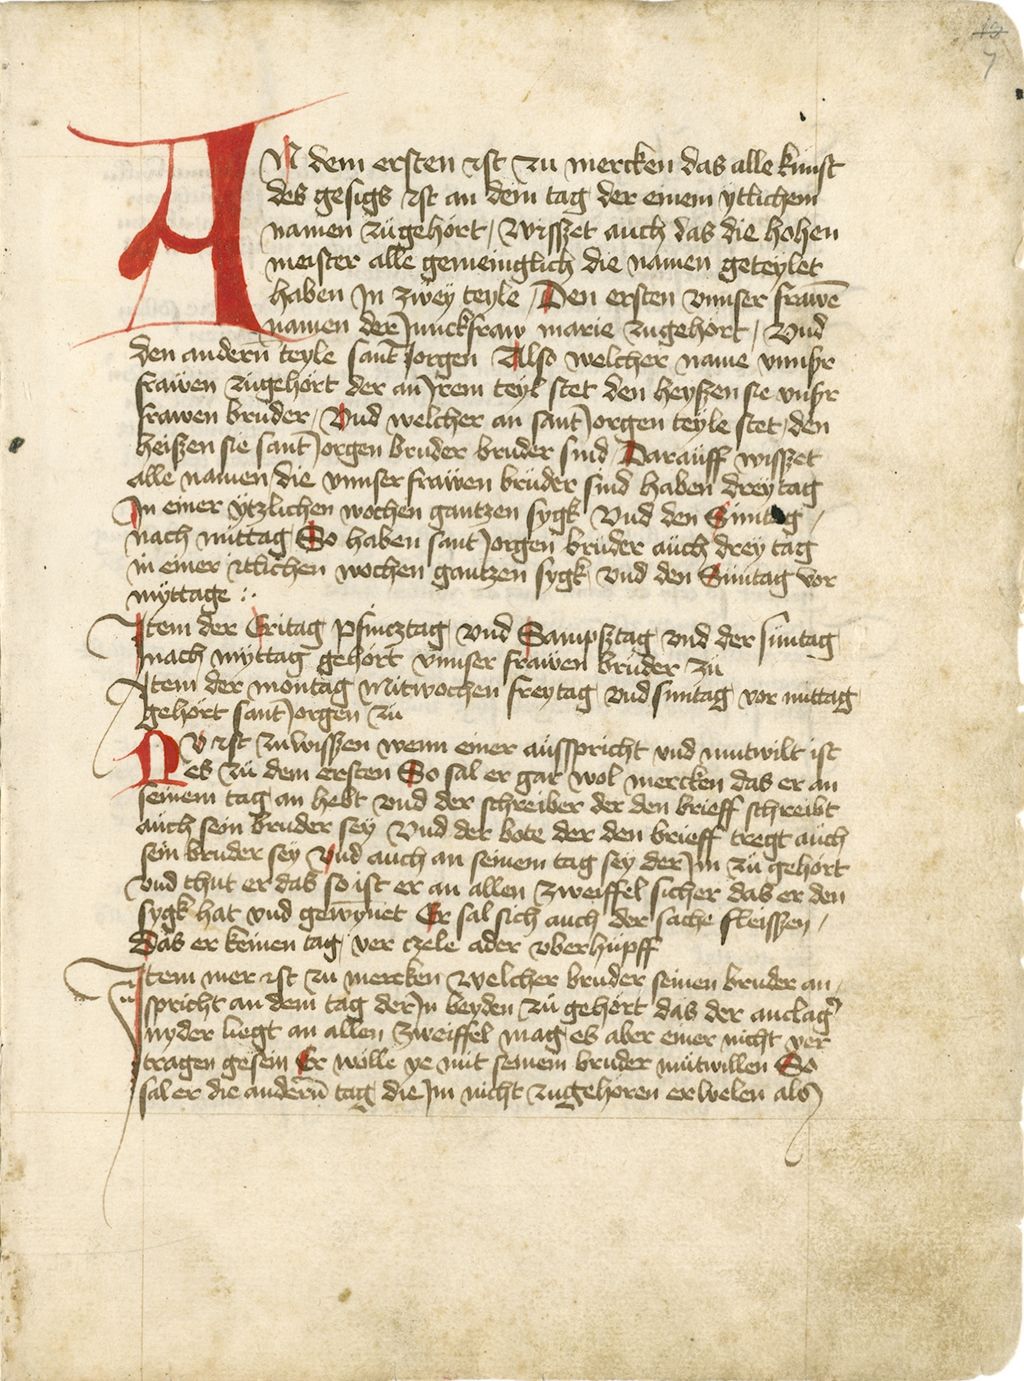 13
7
AN dem ersten ist zu mercken das alle kunst
des gesigs ist an dem tag der einem ytlichem
namen zugehört / Wisszet auch das die hohen
meister alle gemeiniglich die namen geteylet
haben In zwey teyle / Den ersten vnnser frawē
namen der Junckfraw marie zugehört / Vnd
den andern̄ teyle sant Jorgen Also welcher name vnnsr
frawen zugehört der an Irem teyl stet den heyszen sie vnsr
frawen bruder / Vnd welcher an sant Jorgen teyle stet / den
heiszen sie sant Jorgen bruder bruder sind / Darauff wisszet
alle namen die vnnser frawen brüder sind haben drey tag
In einer ytzlichen wochen gantzen sygk Vnd den Suntag /
nach mittag So haben sant Jorgen brüder auch drey tag
in einer itlichen wochen gantzen sygk vnd den Suntag vor
myttage :.
Item der Eritag Pfincztag vnd Sampsztag vnd der suntag
nach myttag gehört vnnser frawen bruder zu
Item der montag Mitwochen freytag vnd suntag vor mittag
gehört sant Jorgen zu
NV ist zu wiszen wenn einer ausspricht vnd mutwilt ist
es zu dem ersten So sal er gar wol mercken das er an
seinem tag an hebt vnd der schreiber der den brieff schreibt
auch sein bruder sey Vnd der bote der den brieff tregt auch
sein bruder sey Vnd auch an seinem tag sey der Im zu gehört
vnd thut er das so ist er an allen zweiffel sicher das er den
sygk hat vnd gewȳnet Er sal sich auch der sache fleissen /
Das er keinen tag ver czele ader vberhüpff
Item mer ist zu mercken Welcher bruder seinen bruder an /
spricht an dem tag der In beyden zu gehört das der anclag'
nyder liegt an allen zweiffel mag es aber einer nicht ver
tragen gesein Er wölle ye mit seinem bruder mutwillen So
sal er die andern̄ tag die Im nicht zugehoren erwelen als